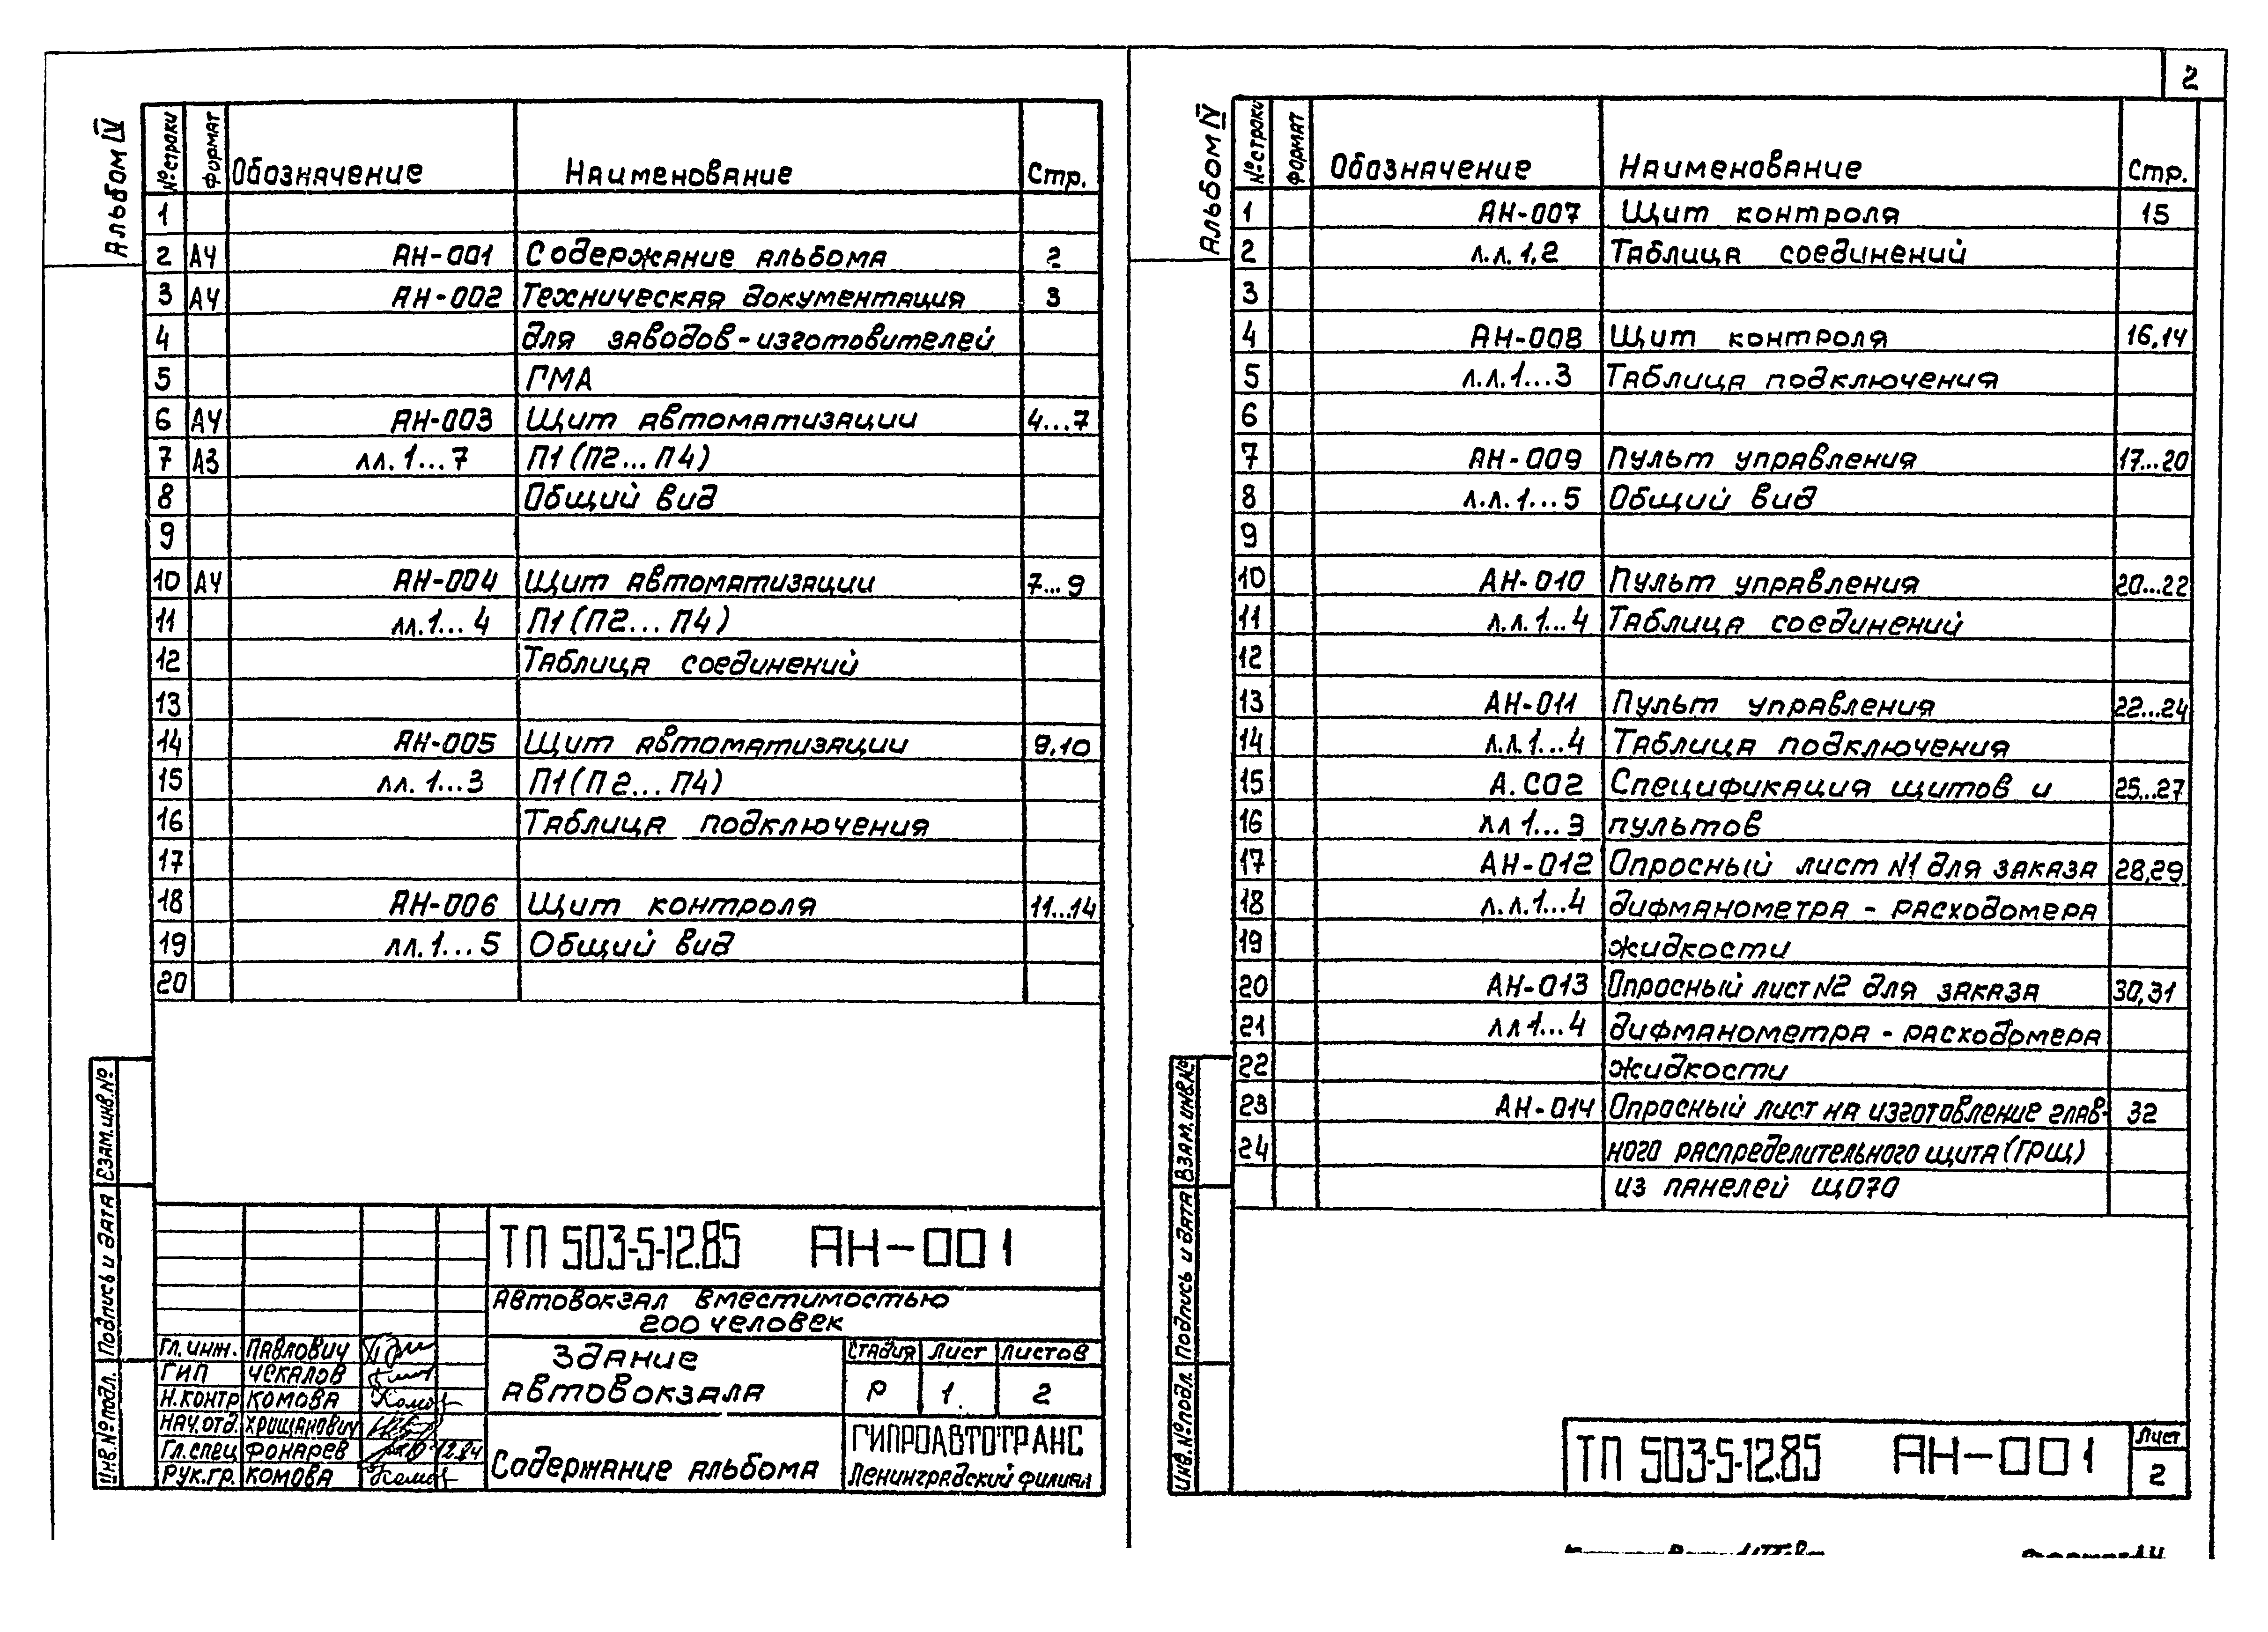 2
Альбом IV
№ строки Формат Обозначение Наименование Стр.
1
2 А4 АН-001 Содержание альбома 2
3 А4 АН-002 Техническая документация 3
4 для заводов-изготовителей
5 ГМА
6 А4 АН-003 Щит автоматизации 4...7
7 А3 лл. 1...7 П1 (П2... П4)
8 Общий вид
9
10 А4 АН-004 Щит автоматизации 7...9
11 лл. 1... 4 П1 (П2... П4)
12 Таблица соединений
13
14 АН-005 Щит автоматизации 9,10
15 лл. 1...3 П1 (П2... П4)
16 Таблица подключения
17
18 АН-006 Щит контроля 11...14
19 лл. 1...5 Общий вид
20
Инв. № подл. Подпись и дата Взам. инв. №
ТП 503-5-12.85 АН-001
Автовокзал вместимостью
200 человек
Гл. инж. Павлович
ГИП Чекалов
Н. контр Комова
Нач. отд. Хрищанович
Гл. спец Фонарев 12.84
Рук. гр. Комова
Здание
автовокзала
Стадия Лист Листов
Р 1. 2
Содержание альбома
ГИПРОАВТОТРАНС
Ленинградский филиал
Альбом IV
№ строки Формат Обозначение Наименование Стр.
1 АН-007 Щит контроля 15
2 л.л. 1,2 Таблица соединений
3
4 АН-008 Щит контроля 16,14
5 л.л. 1...3 Таблица подключения
6
7 АН-009 Пульт управления 17...20
8 л.л. 1...5 Общий вид
9
10 АН-010 Пульт управления 20...22
11 л.л. 1...4 Таблица соединений
12
13 АН-011 Пульт управления 22...24
14 л.л. 1...4 Таблица подключения
15 А. СО2 Спецификация щитов и 25...27
16 лл 1...3 пультов
17 АН-012 Опросный лист N1 для заказа 28,29
18 л.л. 1...4 дифманометра - расходомера
19 жидкости
20 АН-013 Опросный лист N2 для заказа 30,31
21 лл 1...4 дифманометра - расходомера
22 жидкости
23 АН-014 Опросный лист на изготовление глав- 32
24 ного распределительного щита (ГРЩ)
из панелей ЩО70
Инв. № подл. Подпись и дата Взам. инв. №
ТП 503-5-12.85 АН-001
Лист
2